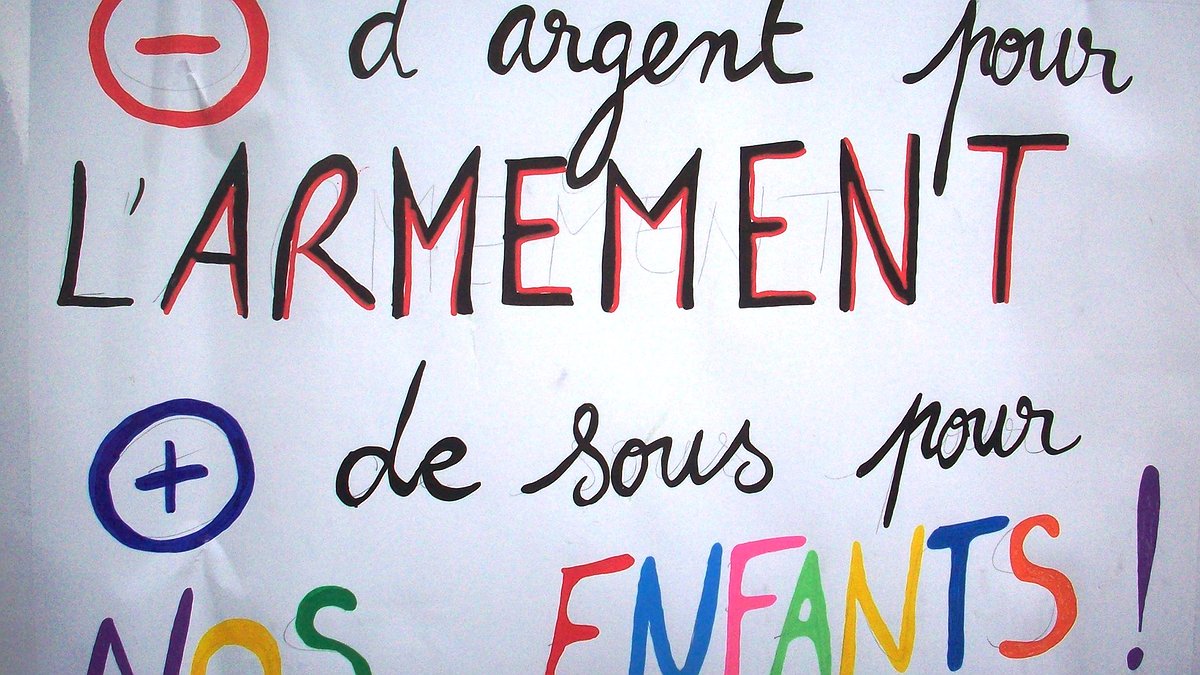 - d argent pour
L'ARMEMENT
+ de sous pour
NOS ENFANTS !